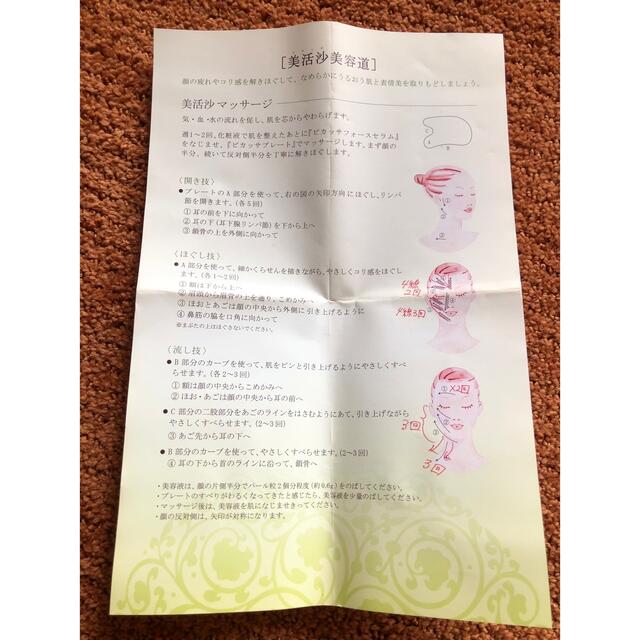 ［美活沙美容道］
顔の疲れやコリ感を解きほぐして、なめらかにうるおう肌と表情美を取りもどしましょう。
美活沙マッサージ
気・血・水の流れを促し、肌を芯からやわらげます。
週1〜2回、化粧液で肌を整えたあとに『ビカッサフォースセラム』
をなじませ、『ビカッサプレート』でマッサージします。まず顔の
半分、続いて反対側半分を丁寧に解きほぐします。
C
A
B
〈開き技〉
●プレートのA部分を使って、右の図の矢印方向にほぐし、リンパ
節を開きます。(各5回)
①耳の前を下に向かって
②耳の下(耳下腺リンパ節)を下から上へ
③鎖骨の上を外側に向かって
〈ほぐし技〉
●A部分を使って、細かくらせんを描きながら、やさしくコリ感をほぐし
ます。(各1〜2回)
①額は下から上へ
②眉頭から眉骨の上を通り、こめかみへ
③ほおとあごは顔の中央から外側に引き上げるように
④鼻筋の脇を口角に向かって
※まぶたの上はほぐさないでください。
4線
2回
9線3回
〈流し技〉
●B部分のカーブを使って、肌をピンと引き上げるようにやさしくすべ
らせます。(各2〜3回)
①額は顔の中央からこめかみへ
②ほお・あごは顔の中央から耳の前へ
●C部分の二股部分をあごのラインをはさむようにあて、引き上げながら
やさしくすべらせます。(2〜3回)
③あご先から耳の下へ
●B部分のカーブを使って、やさしくすべらせます。(2〜3回)
④耳の下から首のラインに沿って、鎖骨へ
①×2回
3回
3回
・美容液は、顔の片側半分でパール粒2個分程度(約0.6g)をのばしてください。
・プレートのすべりがわるくなってきたと感じたら、美容液を少量のばしてください。
・マッサージ後は、美容液を肌になじませきってください。
・顔の反対側は、矢印が対称になります。